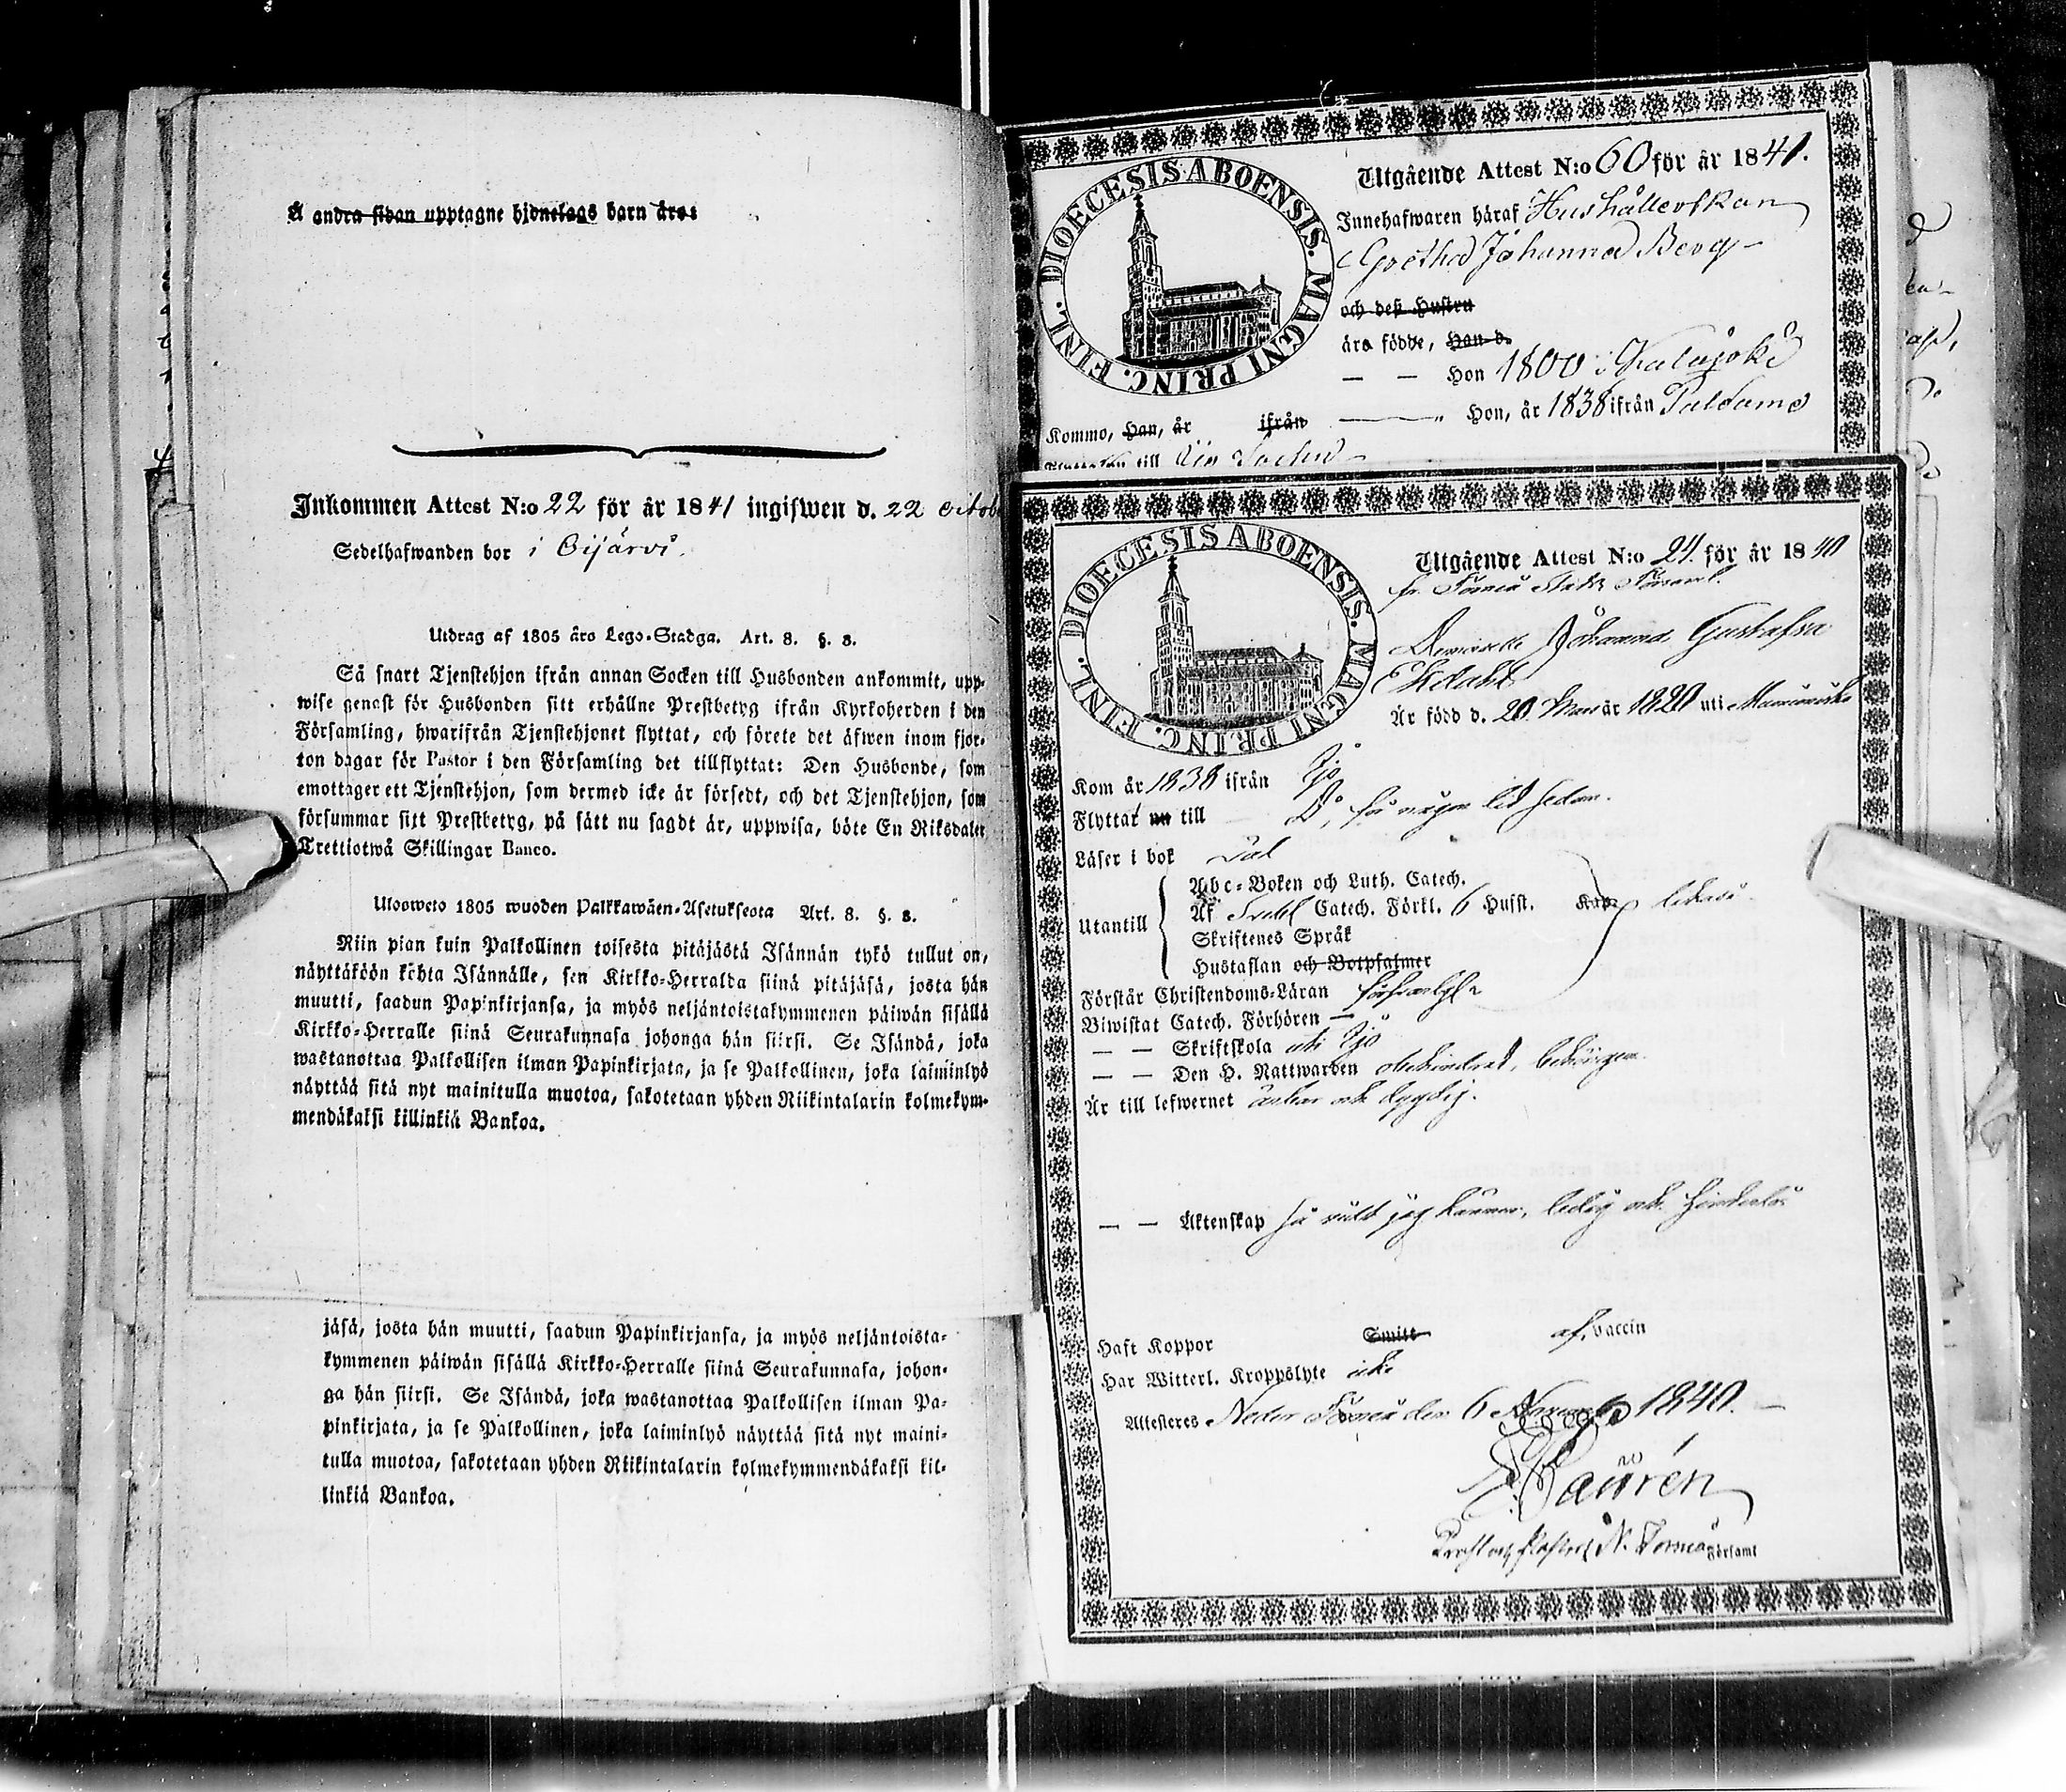 Å andra sidan upptagne hjonelags barn äro:
Inkommen Attest N:o 22 för år 1841 ingifwen d. 22 octob
Sedelhafwanden bor i Oijärvi.
Utdrag af 1805 års Lego-Stadga. Art. 8. §. 8.
Så snart Tjenstehjon ifrån annan Socken till Husbonden ankommit, upp-
wise genast för Husbonden sitt erhållne Prestbetyg ifrån Kyrkoherden i den
Församling, hwarifrån Tjenstehjonet flyttat, och förete det äfwen inom fjor-
ton dagar för Pastor i den Församling det tillflyttat: Den Husbonde, som
emottager ett Tjenstehjon, som dermed icke är försedt, och det Tjenstehjon, som
försummar sitt Prestbetyg, på sätt nu sagdt är, uppwisa, böte En Riksdaler
Trettiotwå Skillingar Banco.
Ulosweto 1805 wuoden Palkkawäen-Asetuksesta Art. 8. §. 8.
Niin pian kuin Palkollinen toisesta pitäjästä Isännän tykö tullut on,
näyttäköön kohta Isännälle, sen Kirkko-Herralda siinä pitäjäsä, josta hän
muutti, saadun Papinkirjansa, ja myös neljäntoistakymmenen päiwän sisällä
Kirkko-Herralle siinä Seurakunnasa johonga hän siirsi. Se Isändä, joka
wastanottaa Palkollisen ilman Papinkirjata, ja se Palkollinen, joka laiminlyö
näyttää sitä nyt mainitulla muotoa, sakotetaan yhden Riikintalarin kolmekym-
mendäkaksi killinkiä Bankoa.
jäsä, josta hän muutti, saadun Papinkirjansa, ja myös neljäntoista-
kymmenen päiwän sisällä Kirkko-Herralle siinä Seurakunnasa, johon-
ga hän siirsi. Se Isändä, joka wastanottaa Palkollisen ilman Pa-
pinkirjata, ja se Palkollinen, joka laiminlyö näyttää sitä nyt maini-
tulla muotoa, sakotetaan yhden Riikintalarin kolmekymmendäkaksi kil-
linkiä Bankoa.
DIOECESIS ABOENSIS. MAGNI PRINC. FINL.
Utgående Attest N:o 60 för år 1841.
Innehafwaren häraf Hushållerskan
Gretha Johanna Berg
och deß Hustru
äro födde, Han d.
— — Hon 1800 i Kalajoki
Kommo, Han, år ifrån — Hon, år 1838 ifrån Paldamo
till Ijo Sochn
DIOECESIS ABOENSIS. MAGNI PRINC. FINL.
Utgående Attest N:o 24. för år 1840
fr. Torneå Stads Församl.
Johanna Gustafva
Ekdahl
Är född d. 20. Mars år 1820 uti
Kom år 1838 ifrån Ijo
Flyttar nu till D:o, för någon tid sedan.
Läser i bok
Utantill
Abc-Boken och Luth. Catech.
Af Catech. Förkl. 6 Hufst. Kap. likaså
Skriftenes Språk
Hustaflan och Botpsalmer
Förstår Christendoms-Läran försvarligt
Biwistat Catech. Förhören —
— — Skriftskola uti Ijo
— — Den H. Nattwarden obehindrad,
Är till lefwernet ärbar och dygdig.
— — Äktenskap så vidt jag känner, ledig och hinderlös
Haft Koppor Smitt af, vaccin
Har Witterl. Kroppslyte icke
Attesteras Neder Torneå den 6 Novemb 1840.
Laurén
Prost och Pastor i N. Torneå Församl